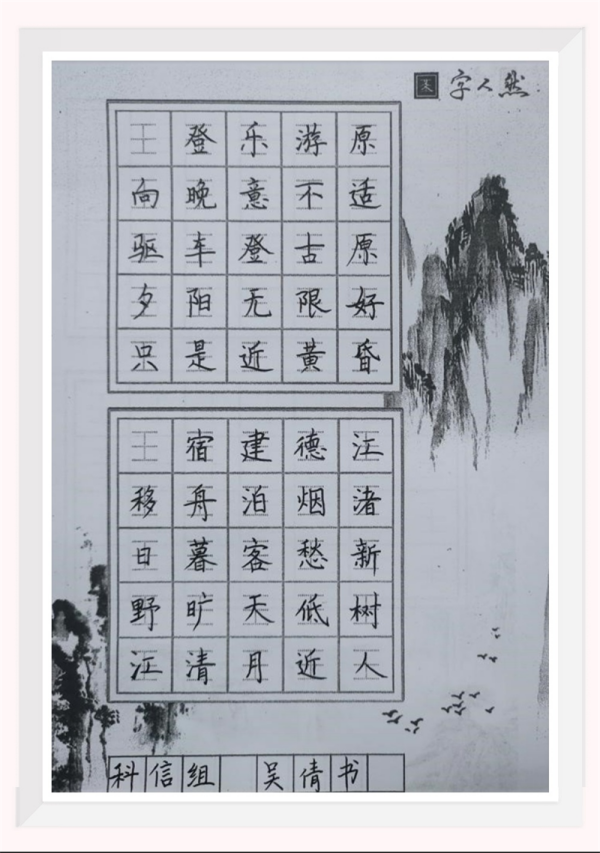 字人然
登乐游原
向晚意不适
驱车登古原
夕阳无限好
只是近黄昏
宿建德江
移舟泊烟渚
日暮客愁新
野旷天低树
江清月近人
科信组 吴倩书